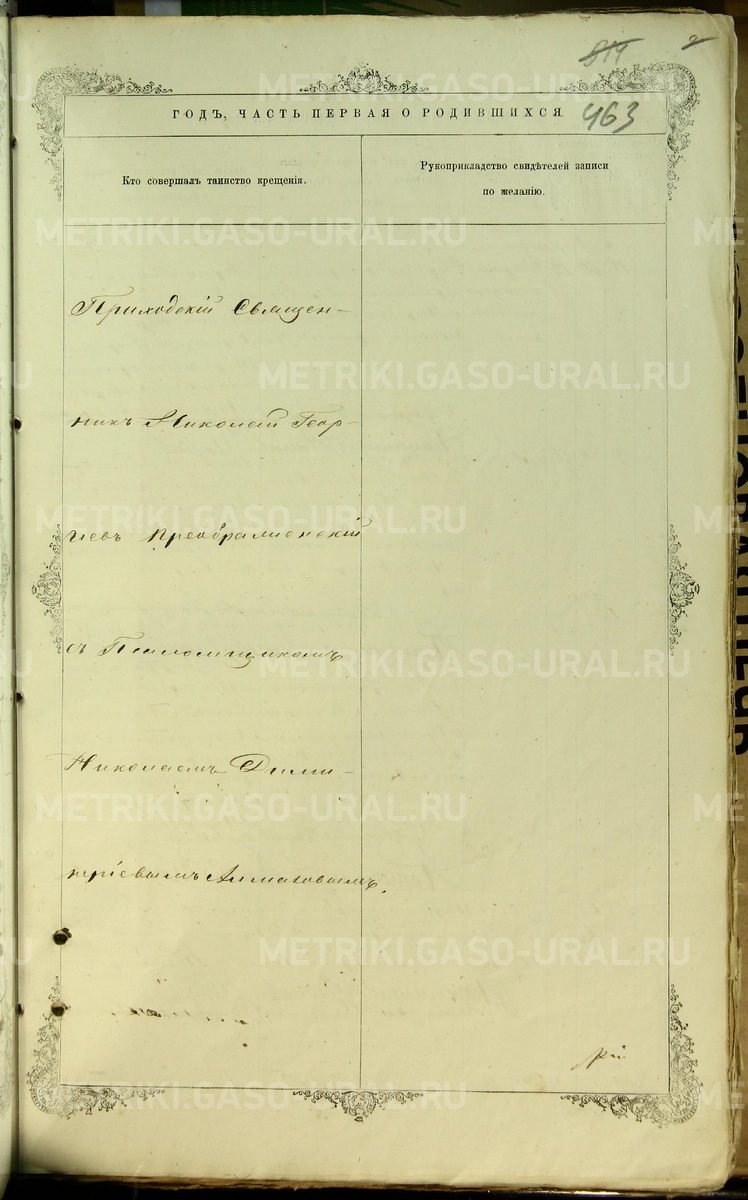 814
2
463
ГОДЪ, ЧАСТЬ ПЕРВАЯ О РОДИВШИХСЯ.
Кто совершалъ таинство крещенія.
Рукоприкладство свидѣтелей записи
по желанію.
Приходскій Священ-
никъ Николай Геор-
гіевъ Преображенскій
съ Псаломщикомъ
Николаемъ Дими-
тріевымъ
METRIKI.GASO-URAL.RU